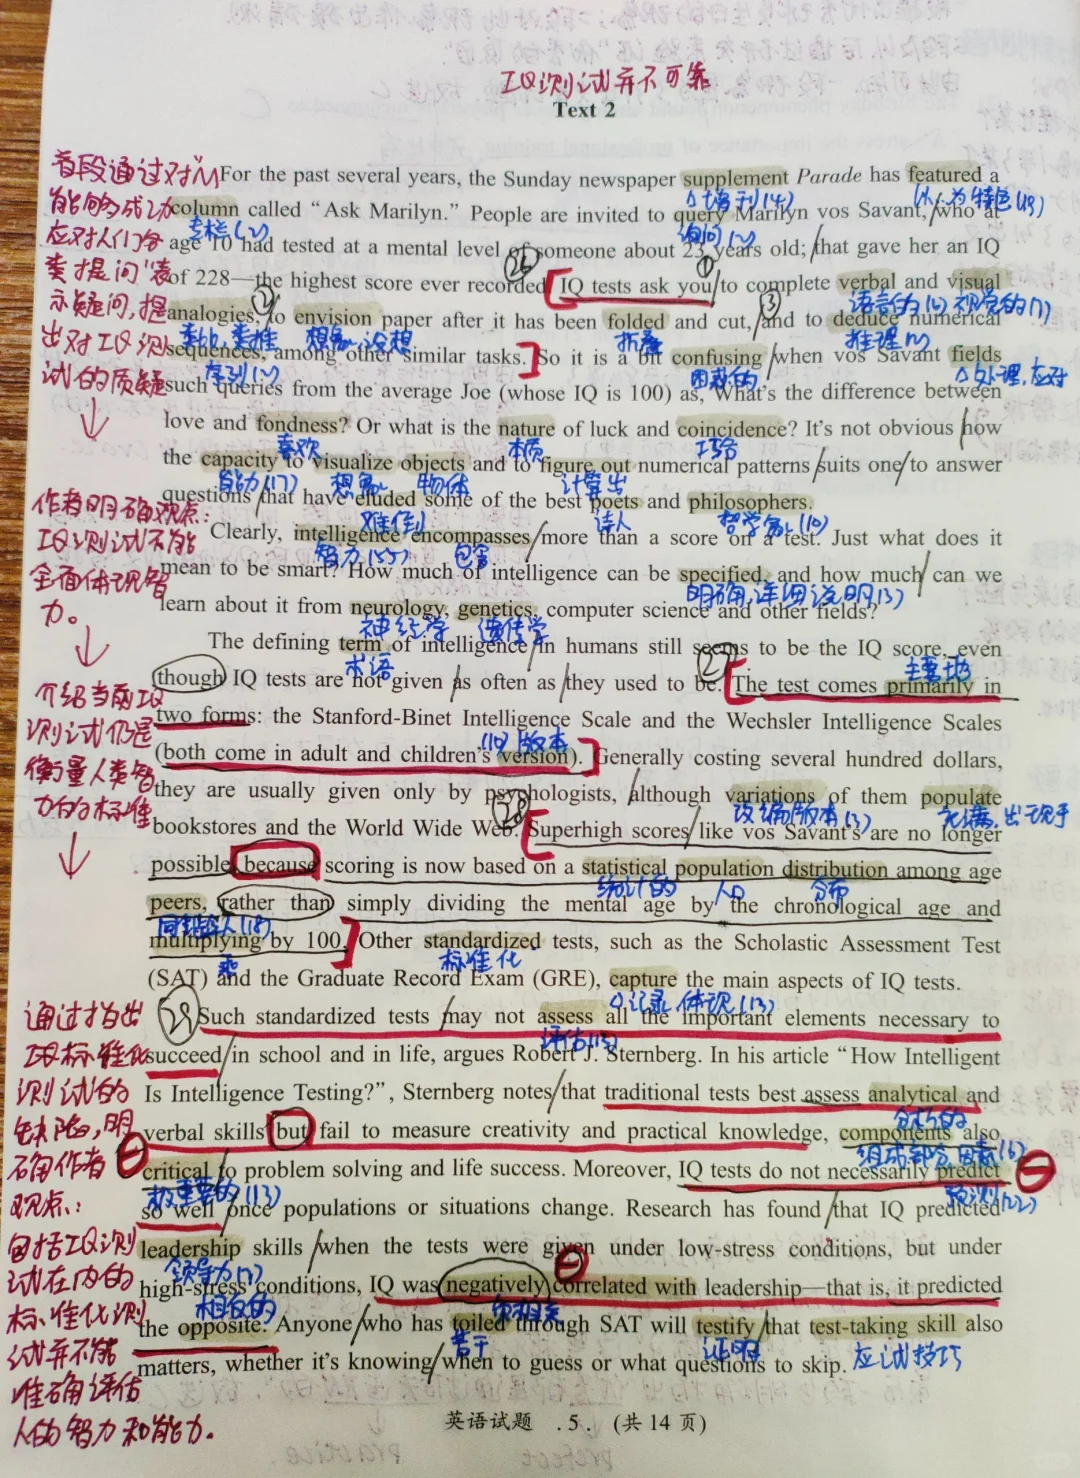 IQ测试并不可靠
Text 2
首段通过对M
能够成功
应对人们分
类提问"表
示疑问,提
出对IQ测
试的质疑
For the past several years, the Sunday newspaper supplement Parade has featured a
△增刊(4) 以…为特色(19)
column called “Ask Marilyn.” People are invited to query Marilyn vos Savant, who at
专栏(2) 询问(2)
age 10 had tested at a mental level of someone about 23 years old; that gave her an IQ
26 ①
of 228—the highest score ever recorded. IQ tests ask you to complete verbal and visual
② ③ 语言的(6) 视觉的(7)
analogies, to envision paper after it has been folded and cut, and to deduce numerical
类比,类推 想象,设想 折叠 推理(2)
sequences, among other similar tasks. So it is a bit confusing when vos Savant fields
序列(2) 困惑的 △处理,应对
such queries from the average Joe (whose IQ is 100) as, What’s the difference between
love and fondness? Or what is the nature of luck and coincidence? It’s not obvious how
喜欢 本质 巧合
the capacity to visualize objects and to figure out numerical patterns suits one to answer
能力(17) 想象 物体 计算出
questions that have eluded some of the best poets and philosophers.
难倒 诗人 哲学家(10)
作者明确观点:
IQ测试不能
全面体现智
力。
Clearly, intelligence encompasses more than a score on a test. Just what does it
智力(55) 包含
mean to be smart? How much of intelligence can be specified, and how much can we
明确,详细说明(3)
learn about it from neurology, genetics, computer science and other fields?
神经学 遗传学
介绍当前IQ
测试仍是
衡量人类智
力的标准
The defining term of intelligence in humans still seems to be the IQ score, even
术语 27 主要地
though IQ tests are not given as often as they used to be. The test comes primarily in
two forms: the Stanford-Binet Intelligence Scale and the Wechsler Intelligence Scales
(10) 版本
(both come in adult and children’s version). Generally costing several hundred dollars,
they are usually given only by psychologists, although variations of them populate
28 改编版本(3) 充满,出现于
bookstores and the World Wide Web. Superhigh scores like vos Savant’s are no longer
possible, because scoring is now based on a statistical population distribution among age
统计的 人口 分布
peers, rather than simply dividing the mental age by the chronological age and
同龄人(18)
multiplying by 100. Other standardized tests, such as the Scholastic Assessment Test
乘 标准化
(SAT) and the Graduate Record Exam (GRE), capture the main aspects of IQ tests.
△记录,体现(13)
通过指出
IQ标准化
测试的
缺陷,明
确作者
观点:
包括IQ测
试在内的
标准化测
试并不能
准确评估
人的智力和能力.
29
Such standardized tests may not assess all the important elements necessary to
评估(15)
succeed in school and in life, argues Robert J. Sternberg. In his article “How Intelligent
Is Intelligence Testing?”, Sternberg notes that traditional tests best assess analytical and
分析的
verbal skills but fail to measure creativity and practical knowledge, components also
组成部分,因素(6)
critical to problem solving and life success. Moreover, IQ tests do not necessarily predict
极重要的(13) 预测(22)
so well once populations or situations change. Research has found that IQ predicted
leadership skills when the tests were given under low-stress conditions, but under
领导力(7)
high-stress conditions, IQ was negatively correlated with leadership—that is, it predicted
相反的
the opposite. Anyone who has toiled through SAT will testify that test-taking skill also
苦干 证明 应试技巧
matters, whether it’s knowing when to guess or what questions to skip.
英语试题 . 5 . (共 14 页)